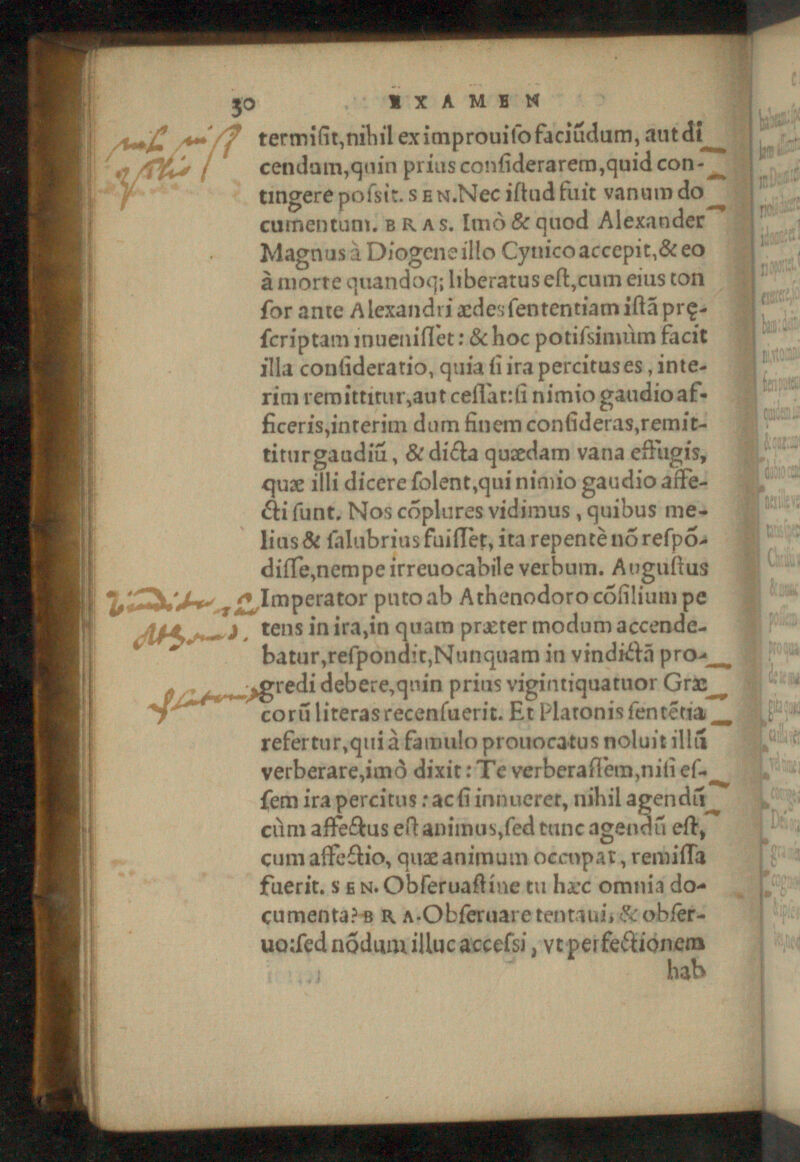 30 EXAMEN
termiſit,nihil ex improuiſo faciũdum, aut di
cendum,quin prius conſiderarem,quid con-
tingere poſsit. SEN.Nec iſtud fuit vanum do
cumentum. BRAS. Imò & quod Alexander
Magnus à Diogene illo Cynico accepit,& eo
à morte quandoq; liberatus eſt,cum eius ton
ſor ante Alexandri ædes ſententiam iſtã prę-
ſcriptam inueniſſet: & hoc potiſsimùm facit
illa conſideratio, quia ſi ira percitus es, inte-
rim remittitur,aut ceſſat:ſi nimio gaudio af-
ficeris,interim dum finem conſideras,remit-
titur gaudiũ, & dicta quædam vana effugis,
quæ illi dicere ſolent,qui nimio gaudio affe-
cti ſunt. Nos cõplures vidimus, quibus me-
lius & ſalubrius fuiſſet, ita repentè nõ reſpõ-
diſſe,nempe irreuocabile verbum. Auguſtus
Imperator puto ab Athenodoro cõſilium pe
tens in ira,in quam præter modum accende-
batur,reſpondit,Nunquam in vindictã pro-
gredi debere,quin prius vigintiquatuor Græ
corũ literas recenſuerit. Et Platonis ſentẽtia
refertur,qui à famulo prouocatus noluit illũ
verberare,imò dixit: Te verberaſſem,niſi eſ-
ſem ira percitus: ac ſi innueret, nihil agendũ
cùm affectus eſt animus,ſed tunc agendũ eſt,
cum affectio, quæ animum occupat, remiſſa
fuerit. SEN. Obſeruaſtine tu hæc omnia do-
cumenta? BRA. Obſeruare tentaui, & obſer-
uo:ſed nõdum illuc acceſsi, vt perfectionem
hab